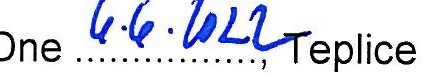 Dne 6.6.2022, Teplice